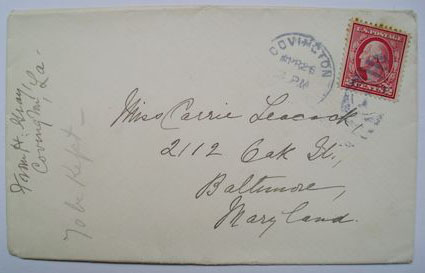 COVINGTON
U.S. POSTAGE
2 CENTS 2
Miss Carrie Leacock
2112 Oak St.,
Baltimore,
Maryland.
Covington, La.
To be Kept —